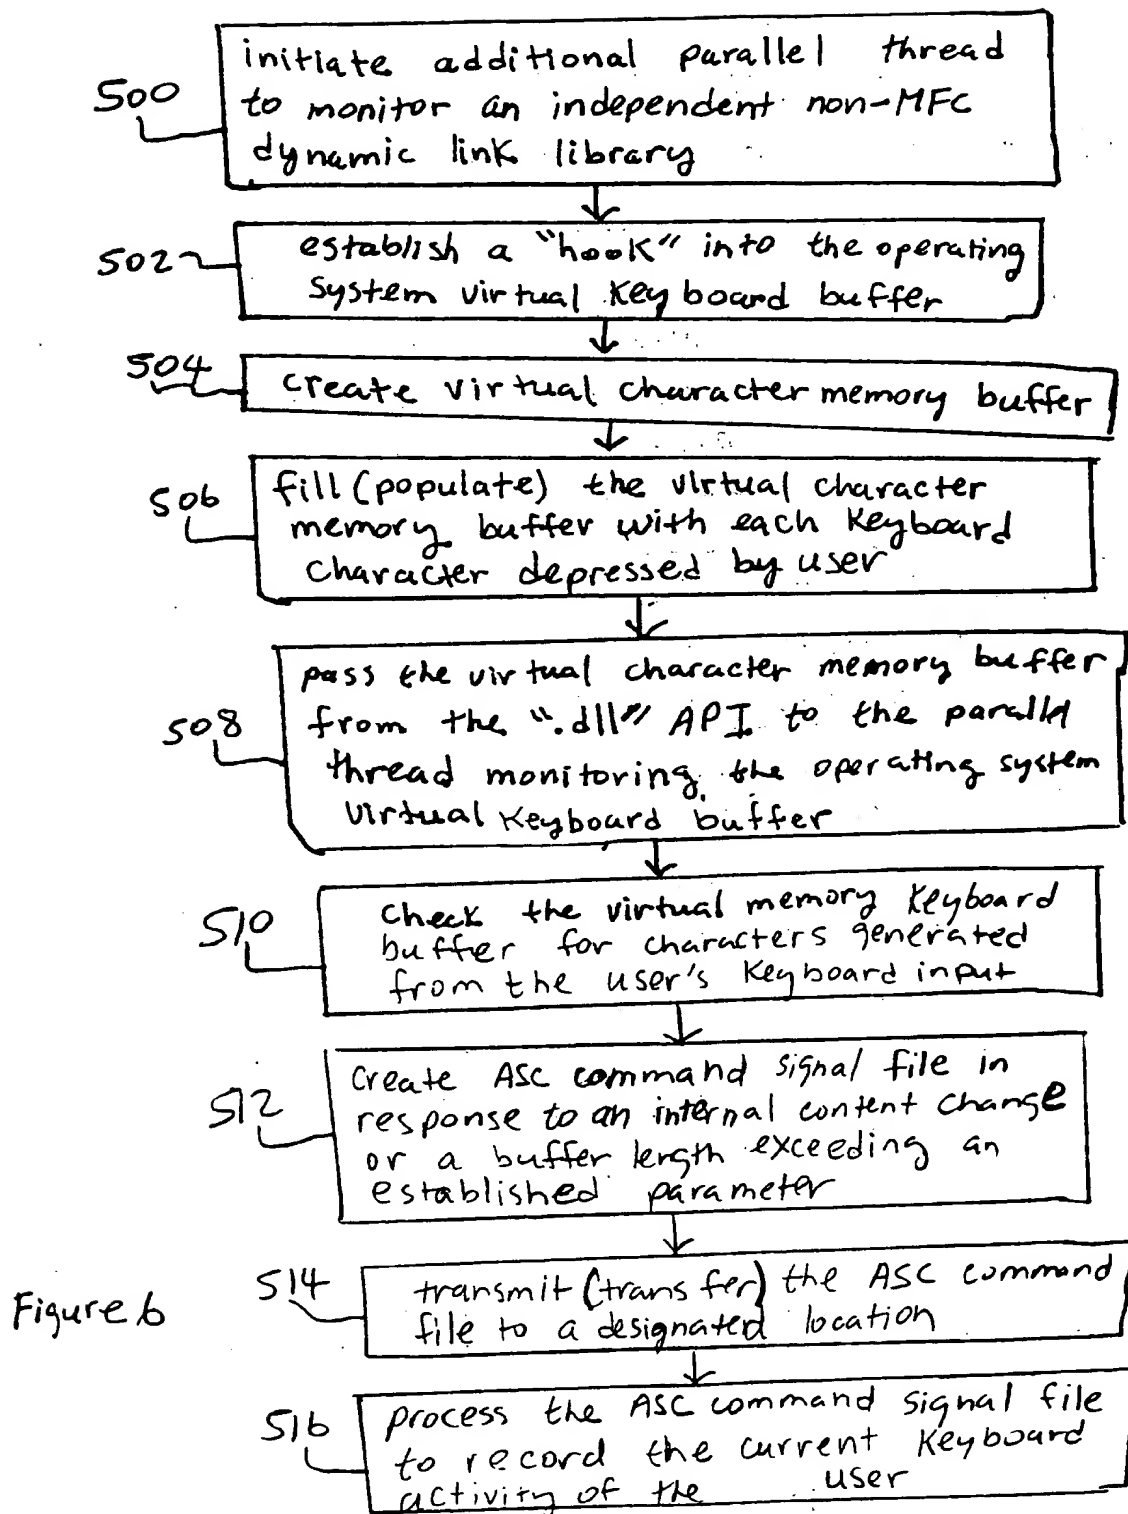 500
initiate additional parallel thread
to monitor an independent non-MFC
dynamic link library
502
establish a "hook" into the operating
system virtual keyboard buffer
504
create virtual character memory buffer
506
fill (populate) the virtual character
memory buffer with each keyboard
character depressed by user
508
pass the virtual character memory buffer
from the ".dll" API to the parallel
thread monitoring the operating system
virtual keyboard buffer
510
check the virtual memory keyboard
buffer for characters generated
from the user's keyboard input
512
create ASC command signal file in
response to an internal content change
or a buffer length exceeding an
established parameter
514
transmit (transfer) the ASC command
file to a designated location
Figure 6
516
process the ASC command signal file
to record the current keyboard
activity of the user